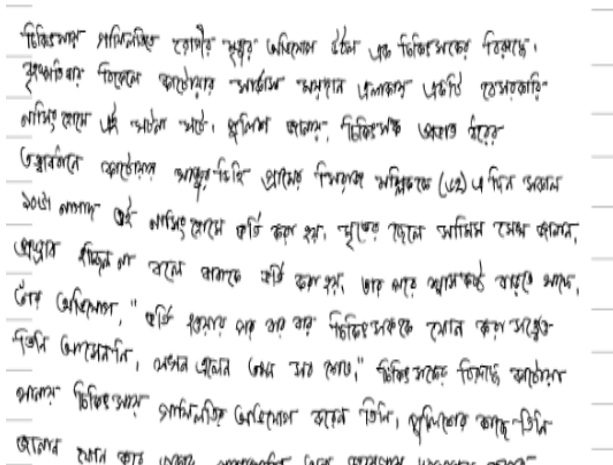 চিকিৎসায় গাফিলতিতে রোগীর মৃত্যুর অভিযোগ উঠল এক চিকিৎসকের বিরুদ্ধে।
বৃহস্পতিবার বিকেলে কাটোয়ার সার্কাস ময়দান এলাকায় একটি বেসরকারি
নার্সিংহোমে এই ঘটনা ঘটে। পুলিশ জানায়, চিকিৎসক
তত্ত্বাবধানে কাটোয়ার গ্রামের মল্লিককে (৬২) এ দিন সকাল
১০টা নাগাদ ওই নার্সিংহোমে ভর্তি করা হয়। মৃতের ছেলে সামিম সেখ জানান,
প্রস্রাব হচ্ছিল না বলে বাবাকে ভর্তি করা হয়, তার পরে শ্বাসকষ্ট বাড়তে থাকে,
তাঁর অভিযোগ, "ভর্তি হওয়ার পর বার বার চিকিৎসককে ফোন করা সত্ত্বেও
তিনি আসেননি, যখন এলেন তখন সব শেষ।" চিকিৎসকের বিরুদ্ধে কাটোয়া
থানায় চিকিৎসায় গাফিলতির অভিযোগ করেন তিনি, পুলিশের কাছে তিনি
জানান ফোন করে